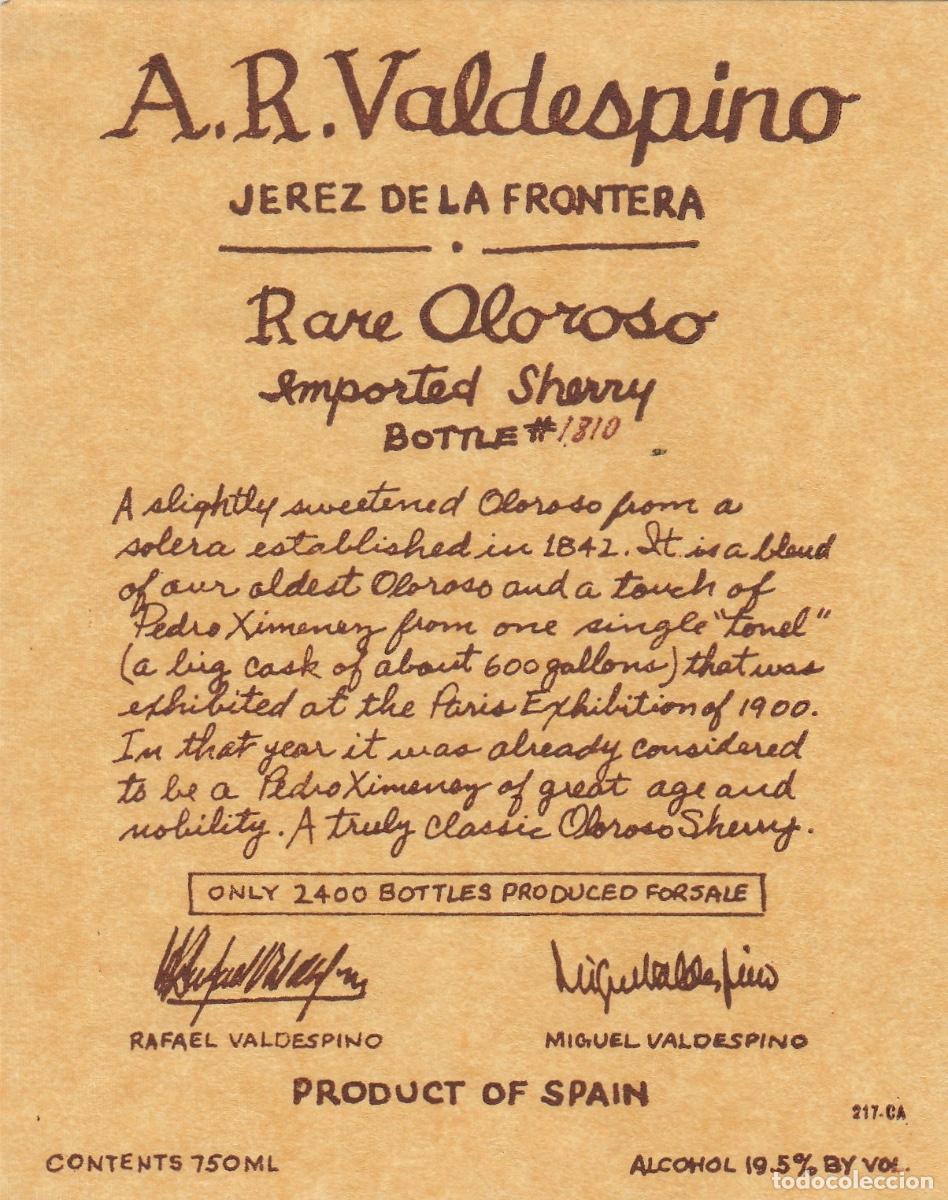 A.R. Valdespino
JEREZ DE LA FRONTERA
Rare Oloroso
Imported Sherry
BOTTLE #1810
A slightly sweetened Oloroso from a
solera established in 1842. It is a blend
of our oldest Oloroso and a touch of
Pedro Ximenez from one single "tonel"
(a big cask of about 600 gallons) that was
exhibited at the Paris Exhibition of 1900.
In that year it was already considered
to be a Pedro Ximenez of great age and
nobility. A truly classic Oloroso Sherry.
ONLY 2400 BOTTLES PRODUCED FOR SALE
Rafael Valdespino Miguel Valdespino
RAFAEL VALDESPINO MIGUEL VALDESPINO
PRODUCT OF SPAIN
217-CA
CONTENTS 750ML ALCOHOL 19.5% BY VOL.
todocoleccion